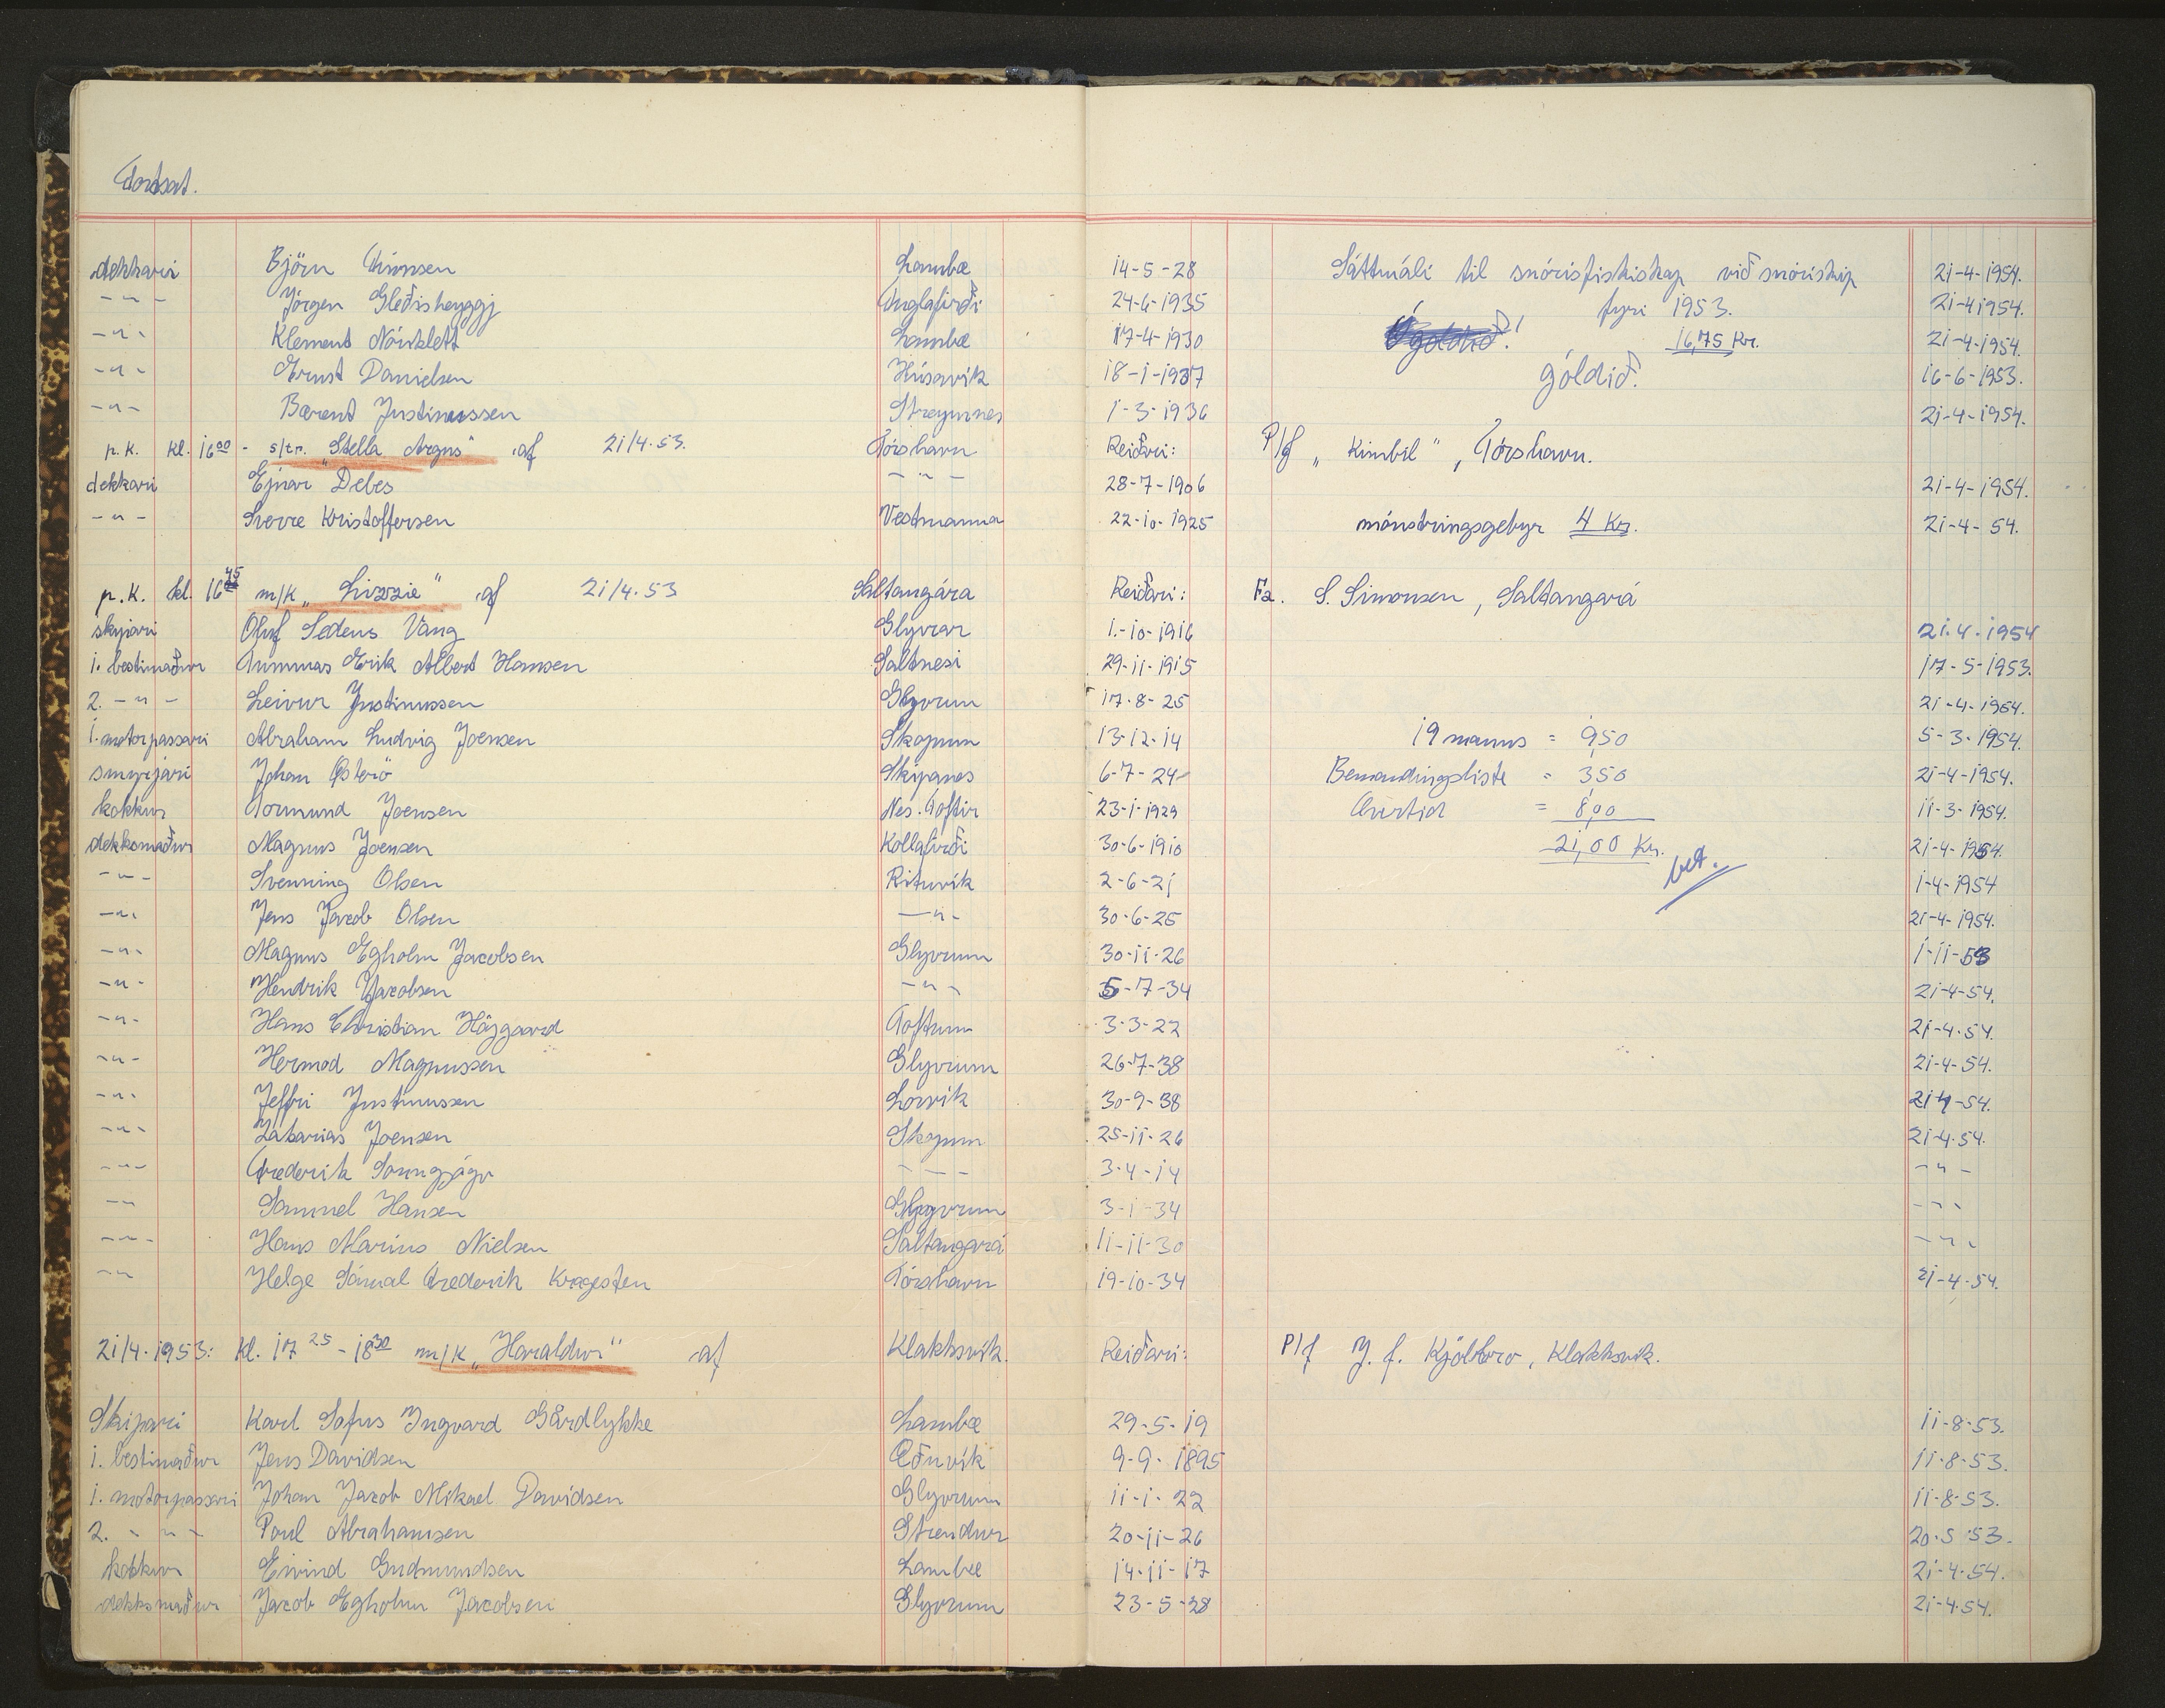 Fortsat.
dekkari Björn Simonsen Lambæ 14-5-28 Sáttmáli til snörisfiskiskap við snöriskip 21-4-1954.
-"- Jörgen Gleðisheyggj Fuglafirði 24-6-1935 fyri 1953. 21-4 1954.
-"- Klement Norðklett Lambæ 17-4-1930 Ógoldið! 16,75 Kr. 21-4-1954.
-"- Ernst Danielsen Húsavik 18-1-1937 góldið. 16-6-1953.
-"- Berent Justinussen Streymnes 1-3-1936 21-4-1954.
p.k. Kl. 16 00 - s/tr. "Stella Argus" af 21/4.53. Tórshavn Reiðari: P/f "Kimbil", Tórshavn.
dekkari Ejnar Debes -"- 28-7-1906 21-4-1954.
-"- Sverre Kristoffersen Vestmanna 22-10-1925 mónstringsgebyr 4 Kr. 21-4-54.
p.K. kl. 16 45 m/k "Lizzie" af 21/4.53 Saltangára Reiðari: Fa. S. Simonsen, Saltangará
skipari Oluf Sedeus Vang Glyvrar 1.-10-1916 21.4.1954
1. bestimaður Tummas Erik Albert Hansen Saltnesi 29-11-1915 17-5-1953.
2. -"- Leivur Justinussen Glyvrum 17-8-25 21-4-1954.
1. motorpassari Abraham Ludvig Joensen Skopun 13-12-14 19 manns = 9,50 5-3-1954.
smyrjari Johan Østerö Skipanes 6-7-24 Bemandingsliste = 3,50 21-4-1954.
kokkur Tormund Joensen Nes. Toftir 23-1-1929 Overtid = 8,00 11-3-1954.
dekksmaður Magnus Joensen Kollafirði 30-6-1910 21,00 Kr. bet. 21-4-1954.
-"- Svenning Olsen Rituvík 2-6-21 1-4-1954
-"- Jens Jacob Olsen -"- 30-6-25 21-4-1954.
-"- Magnus Egholm Jacobsen Glyvrum 30-11-26 1-11-53
-"- Hendrik Jacobsen -"- 5-7-34 21-4-54.
-"- Hans Christian Höjgaard Toftum 3-3-22 21-4-54.
-"- Hermod Magnussen Glyvrum 26-7-38 21-4-54.
-"- Jeffri Justinussen Lorvík 30-9-38 21 4-54.
-"- Zakarias Joensen Skopun 25-11-26 21-4-54.
-"- Frederik Sørensen -"- 3-4-14 -"-
-"- Samuel Hansen Glyvrum 3-1-34 -"-
-"- Hans Marius Nielsen Saltangará 11-11-30 -"-
-"- Helge Sámal Frederik Kragesten Tórshavn 19-10-34 21-4-54.
21/4.1953: Kl. 17 25 - 18 30 m/k "Haraldur" af Klakksvik. Reiðari: P/f J. F. Kjölbro, Klakksvik.
Skipari Karl Sofus Ingvard Gårdlykke Lambæ 29-5-19 11-8-53.
1. bestimaður Jens Davidsen Eðuvík 9-9-1895 11-8-53.
1. motorpassari Johan Jacob Mikael Davidsen Glyvrum 11-1-22 11-8-53.
2. -"- Poul Abrahamsen Strendur 20-11-26 20-5 53.
kokkur Eivind Gudmundsen Lambæ 14-11-17 21-4-54.
dekksmaður Jacob Egholm Jacobsen Glyvrum 23-5-28 21-4-54.